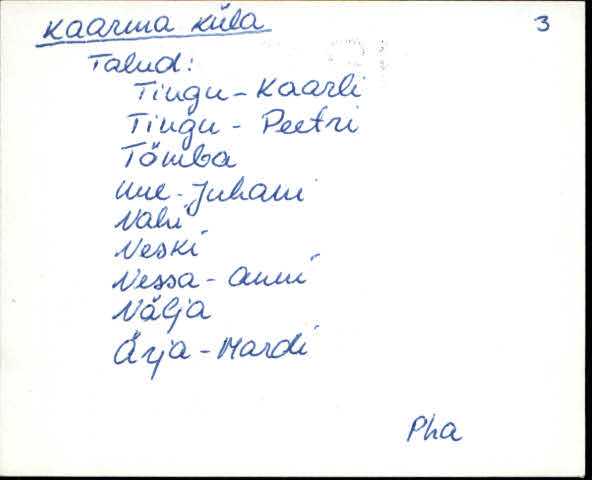 Kaarma küla 3
Talud:
Tiugu-Kaarli
Tiugu - Peetri
Tõmba
Uue-Juhani
Vahi
Veski
Vessa-Anni
Välja
Ärja-Mardi
Pha